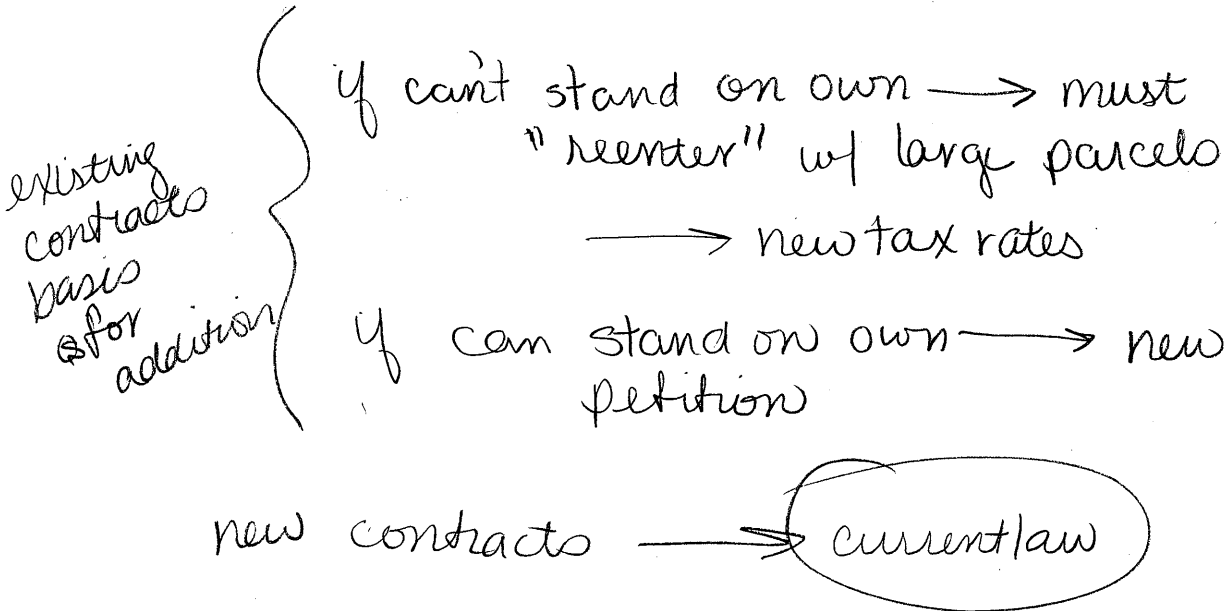 existing
contracts
basis
for
addition
if can't stand on own → must
"reenter" w/ large parcels
→ new tax rates
if can stand on own → new
petition
new contracts → current law